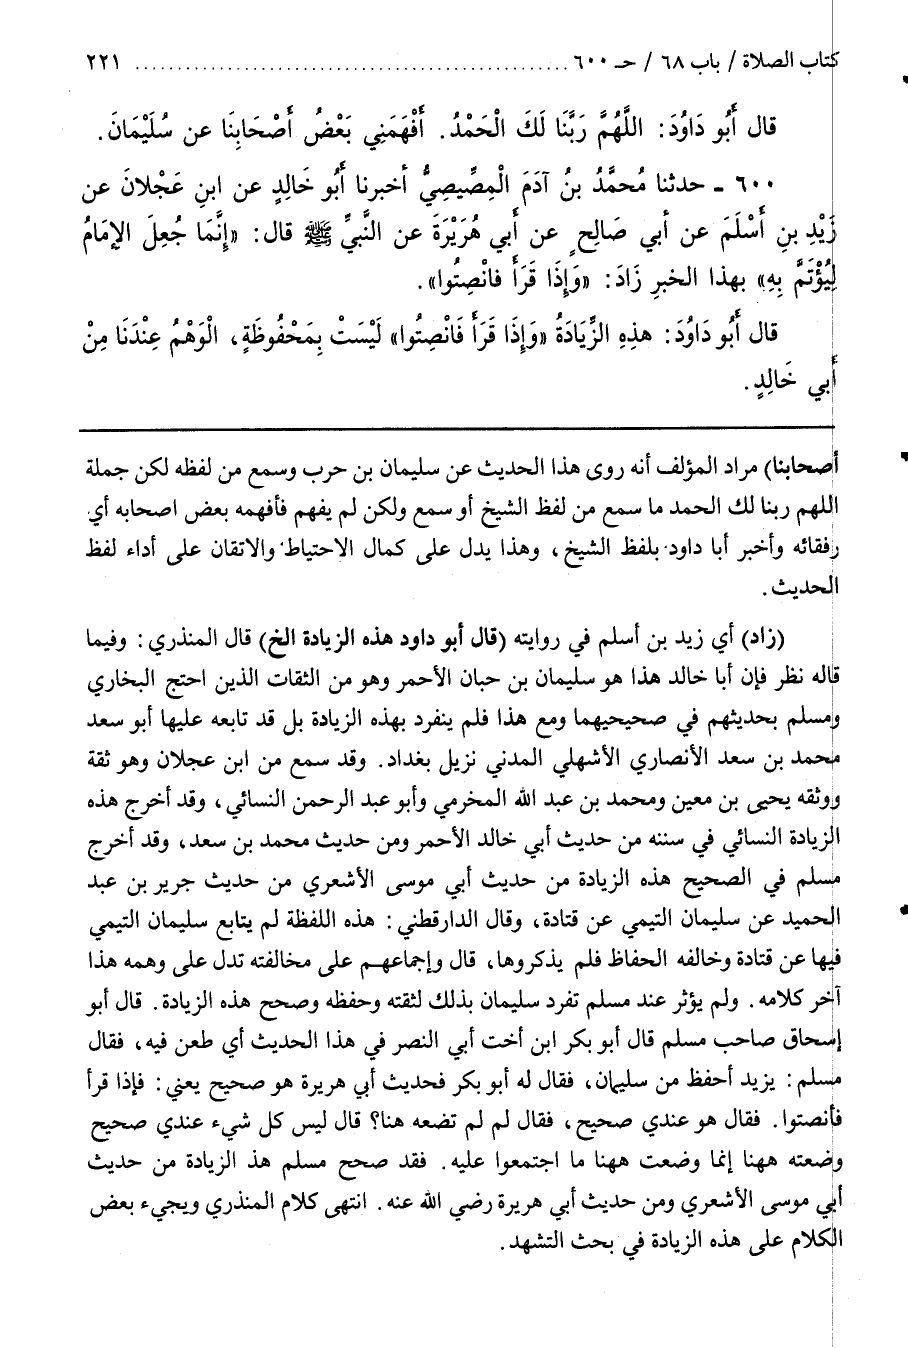 كتاب الصلاة / باب ٦٨ / حـ ٦٠٠ ................................................ ٢٢١
قال أَبُو دَاوُدَ: اللَّهُمَّ رَبَّنَا لَكَ الْحَمْدُ. أَفْهَمَنِي بَعْضُ أَصْحَابِنَا عن سُلَيْمَانَ.
٦٠٠ ـ حدثنا مُحمَّدُ بنُ آدَمَ الْمِصِّيصِيُّ أخبرنا أَبُو خَالِدٍ عن ابنِ عَجْلانَ عن
زَيْدِ بنِ أَسْلَمَ عن أبي صَالِحٍ عن أَبي هُرَيْرَةَ عن النَّبيِّ ﷺ قال: «إِنَّمَا جُعِلَ الإمَامُ
لِيُؤْتَمَّ بِهِ» بهذا الخبرِ زَادَ: «وَإِذَا قَرَأَ فانْصِتُوا».
قال أَبُو دَاوُدَ: هذِهِ الزِّيَادَةُ «وَإِذَا قَرَأَ فَانْصِتُوا» لَيْسَتْ بِمَحْفُوظَةٍ، الْوَهْمُ عِنْدَنَا مِنْ
أَبي خَالِدٍ.
أصحابنا) مراد المؤلف أنه روى هذا الحديث عن سليمان بن حرب وسمع من لفظه لكن جملة
اللهم ربنا لك الحمد ما سمع من لفظ الشيخ أو سمع ولكن لم يفهم فأفهمه بعض اصحابه أي
رفقائه وأخبر أبا داود بلفظ الشيخ، وهذا يدل على كمال الاحتياط والاتقان على أداء لفظ
الحديث.
(زاد) أي زيد بن أسلم في روايته (قال أبو داود هذه الزيادة الخ) قال المنذري: وفيما
قاله نظر فإن أبا خالد هذا هو سليمان بن حبان الأحمر وهو من الثقات الذين احتج البخاري
ومسلم بحديثهم في صحيحيهما ومع هذا فلم ينفرد بهذه الزيادة بل قد تابعه عليها أبو سعد
محمد بن سعد الأنصاري الأشهلي المدني نزيل بغداد. وقد سمع من ابن عجلان وهو ثقة
ووثقه يحيى بن معين ومحمد بن عبد الله المخرمي وأبو عبد الرحمن النسائي، وقد أخرج هذه
الزيادة النسائي في سننه من حديث أبي خالد الأحمر ومن حديث محمد بن سعد، وقد أخرج
مسلم في الصحيح هذه الزيادة من حديث أبي موسى الأشعري من حديث جرير بن عبد
الحميد عن سليمان التيمي عن قتادة، وقال الدارقطني: هذه اللفظة لم يتابع سليمان التيمي
فيها عن قتادة وخالفه الحفاظ فلم يذكروها، قال وإجماعهم على مخالفته تدل على وهمه هذا
آخر كلامه. ولم يؤثر عند مسلم تفرد سليمان بذلك لثقته وحفظه وصحح هذه الزيادة. قال أبو
إسحاق صاحب مسلم قال أبو بكر ابن أخت أبي النصر في هذا الحديث أي طعن فيه، فقال
مسلم: يزيد أحفظ من سليمان، فقال له أبو بكر فحديث أبي هريرة هو صحيح يعني: فإذا قرأ
فأنصتوا. فقال هو عندي صحيح، فقال لم لم تضعه هنا؟ قال ليس كل شيء عندي صحيح
وضعته ههنا إنما وضعت ههنا ما اجتمعوا عليه. فقد صحح مسلم هذ الزيادة من حديث
أبي موسى الأشعري ومن حديث أبي هريرة رضي الله عنه. انتهى كلام المنذري ويجيء بعض
الكلام على هذه الزيادة في بحث التشهد.